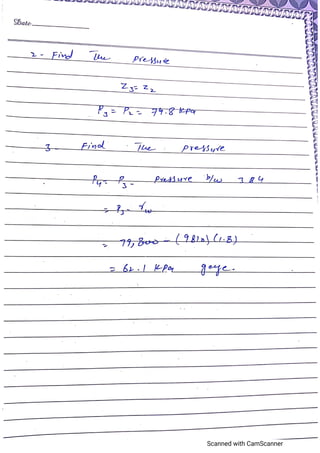 Date
2- Find The pressure
Z3= Z2
P3= P2= 79.8 kPa
3- Find The pressure
P4= P3- Pressure b/w 3 & 4
= P3- γw
= 79,800 - (9810) (1.8)
= 62.1 kPa gage.
Scanned with CamScanner